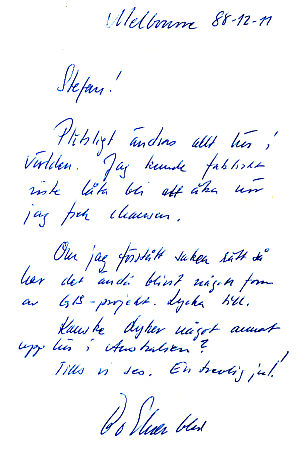 Melbourne 88-12-11
Stefan!
Plötsligt ändras allt här i
världen. Jag kunde faktiskt
inte låta bli att åka när
jag fick chansen.
Om jag förstått saken rätt så
har det ändå blivit någon form
av GIS-projekt. Lycka till.
Kanske dyker något annat
upp här i Australien?
Tills vi ses. En trevlig jul!
Bo